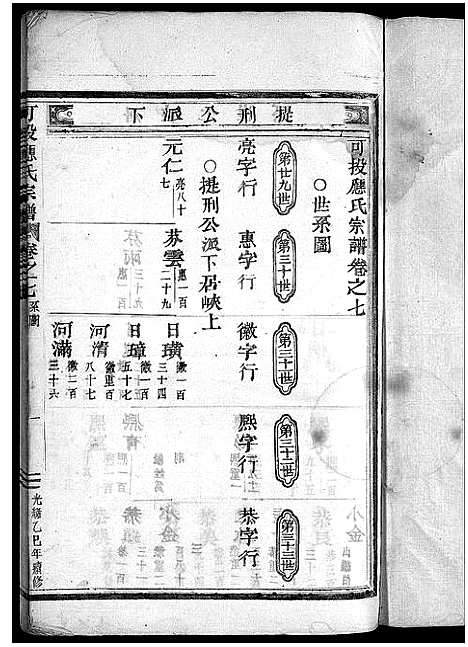 提刑公派下
可投應氏宗譜卷之七
○世系圖
第廿九世
第三十世
第三十一世
第三十二世
第三十三世
亮字行
惠字行
徽字行
熈字行
恭字行
○提刑公派下居峽上
元仁 亮八十七
芬雲 惠一百二十九
日璜 徽一百三十四
日璋 徽一百五十七
河清 徽重百八十七
河滿 徽一百三十六
可投應氏宗譜
卷之七
系圖
一
光緒乙巳年續修